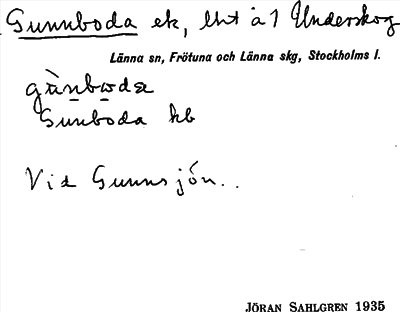 Gunnboda ek, lht å 1 Underskog
Länna sn, Frötuna och Länna skg, Stockholms l.
gùnboda
Gunboda hb
Vid Gunnsjön..
JÖRAN SAHLGREN 1935